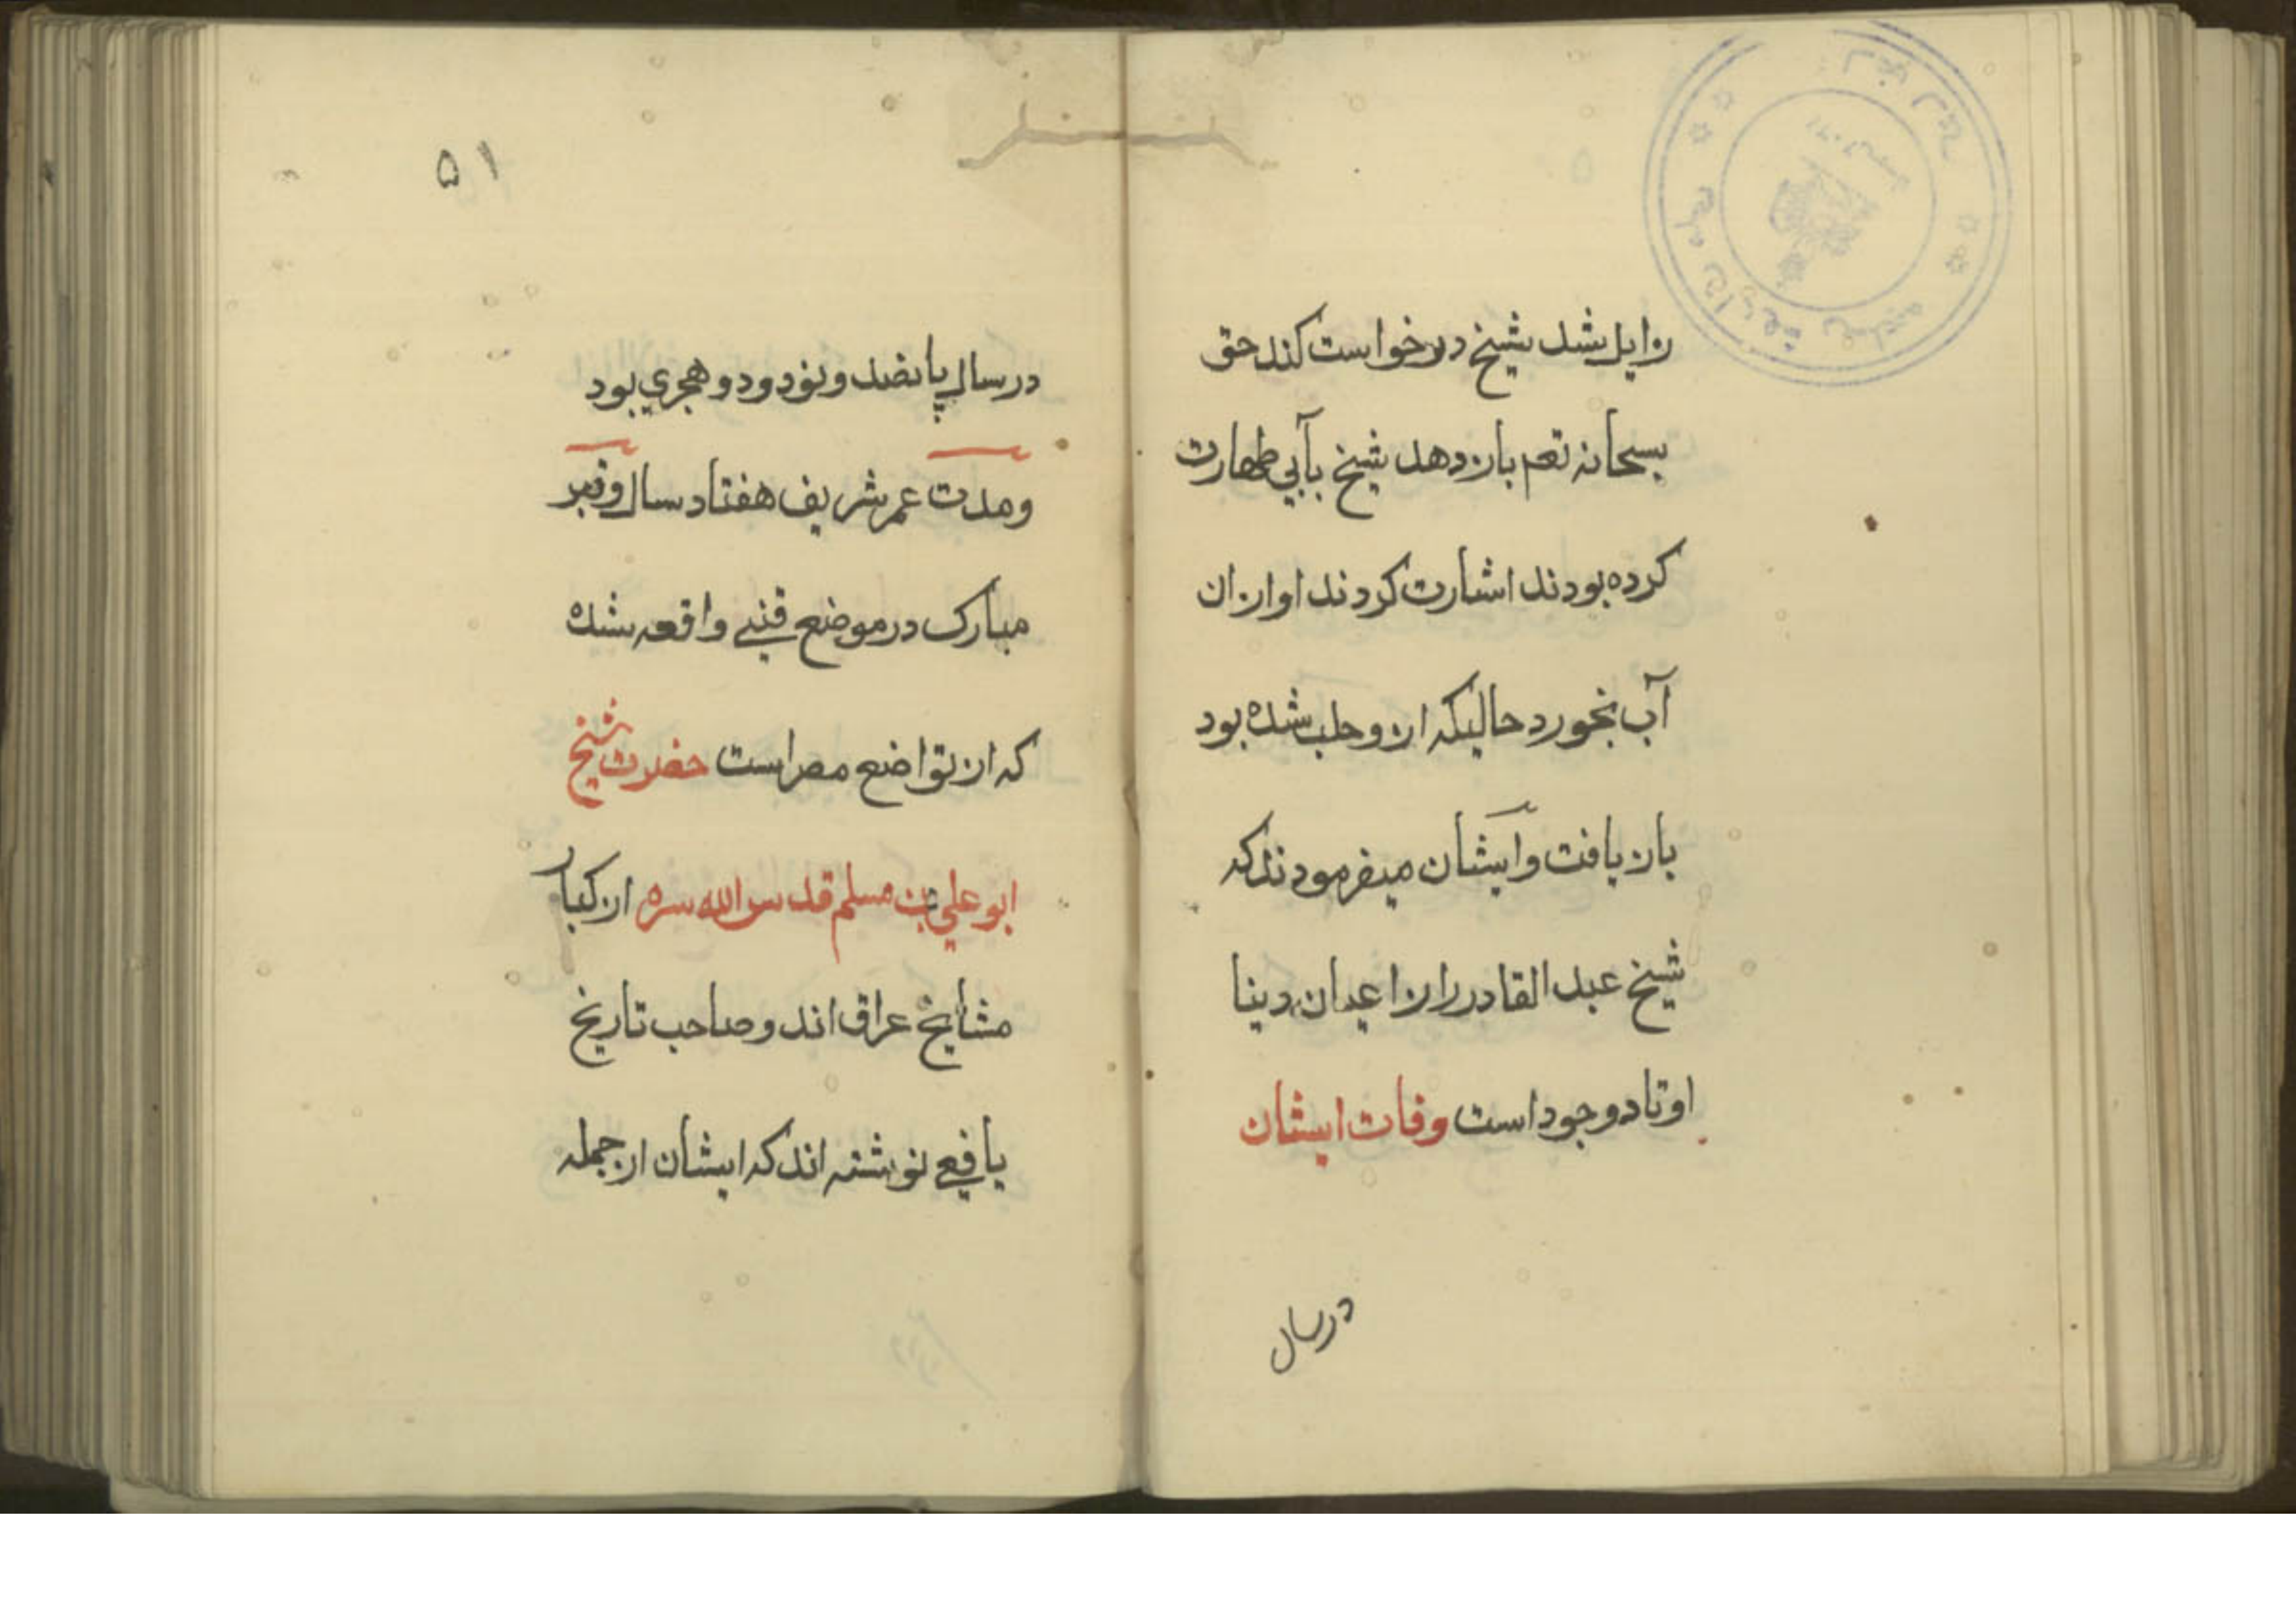 زایل شد شیخ درخواست کند حق
سبحانه تعم باز دهد شیخ بآبی طهارت
کرده بودند اشارت کردند او ازان
آب بخورد حالیکه ازو حلب شده بود
باز یافت وایشان میفرمودند که
شیخ عبد القادر را از اعیان دینا
اوتاد وجود است وفات ایشان
درسال
۵۱
درسال پانصد و نود و دو هجري بود
ومدت عمر شریف هفتاد سال وقبر
مبارک در موضع قنی واقعه شده
که از تواضع مصر است حضرت شیخ
ابو علي بن مسلم قدس الله سره از کبار
مشایخ عراق اند و صاحب تاریخ
یافعي نوشته اند که ایشان از جمله